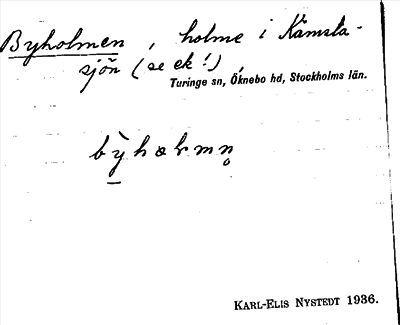 Byholmen, holme i Kämsta-
sjön (se ek!),
Turinge sn, Öknebo hd, Stockholms län.
bỳhəlmn̥
KARL-ELIS NYSTEDT 1936.